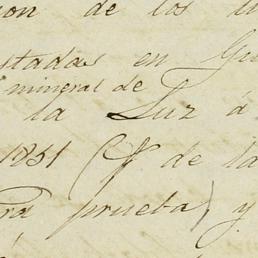 ion de los
stadas en Gu
mineral de
la Luz á
1851 ( de la
prueba) y